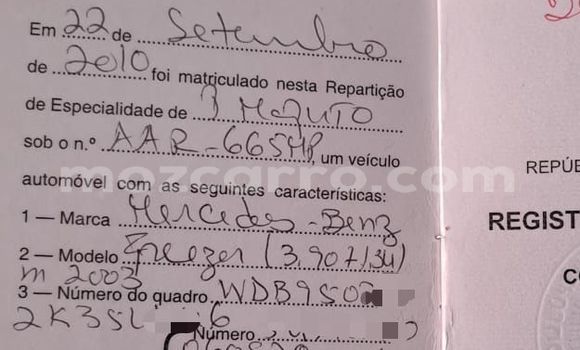 Em 22 de Setembro
de 2010 foi matriculado nesta Repartição
de Especialidade de Maputo
sob o n.º AAR-665MP, um veículo
mozcarro.com
automóvel com as seguintes características:
1 — Marca Mercedes-Benz
2 — Modelo Freezer (3.907/34)
m 2003
3 — Número do quadro WDB950
2K3SL 6
Número
REPÚB
REGIST